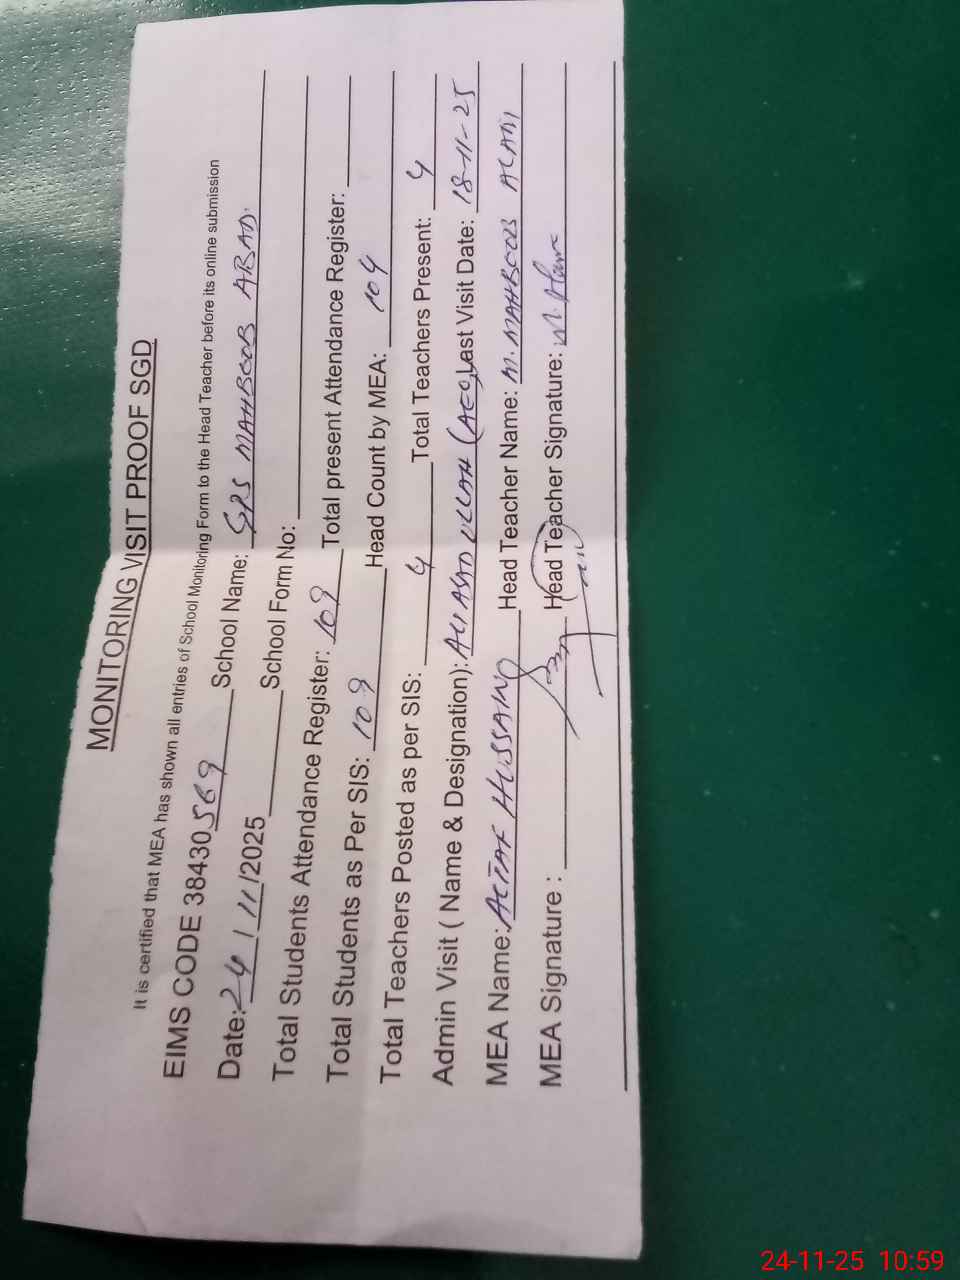 MONITORING VISIT PROOF SGD
It is certified that MEA has shown all entries of School Monitoring Form to the Head Teacher before its online submission
EIMS CODE 38430569 School Name: GPS MAHBOOB ABAD.
Date: 24/11/2025 School Form No:
Total Students Attendance Register: 109 Total present Attendance Register:
Total Students as Per SIS: 109 Head Count by MEA: 104
Total Teachers Posted as per SIS: 4 Total Teachers Present: 4
Admin Visit ( Name & Designation): ALI ASAD ULLAH (AEO) Last Visit Date: 18-11-25
MEA Name: ALTAF HUSSAIN Head Teacher Name: M. MAHBOOB ALAM
MEA Signature : Head Teacher Signature: M. Alam
24-11-25 10:59